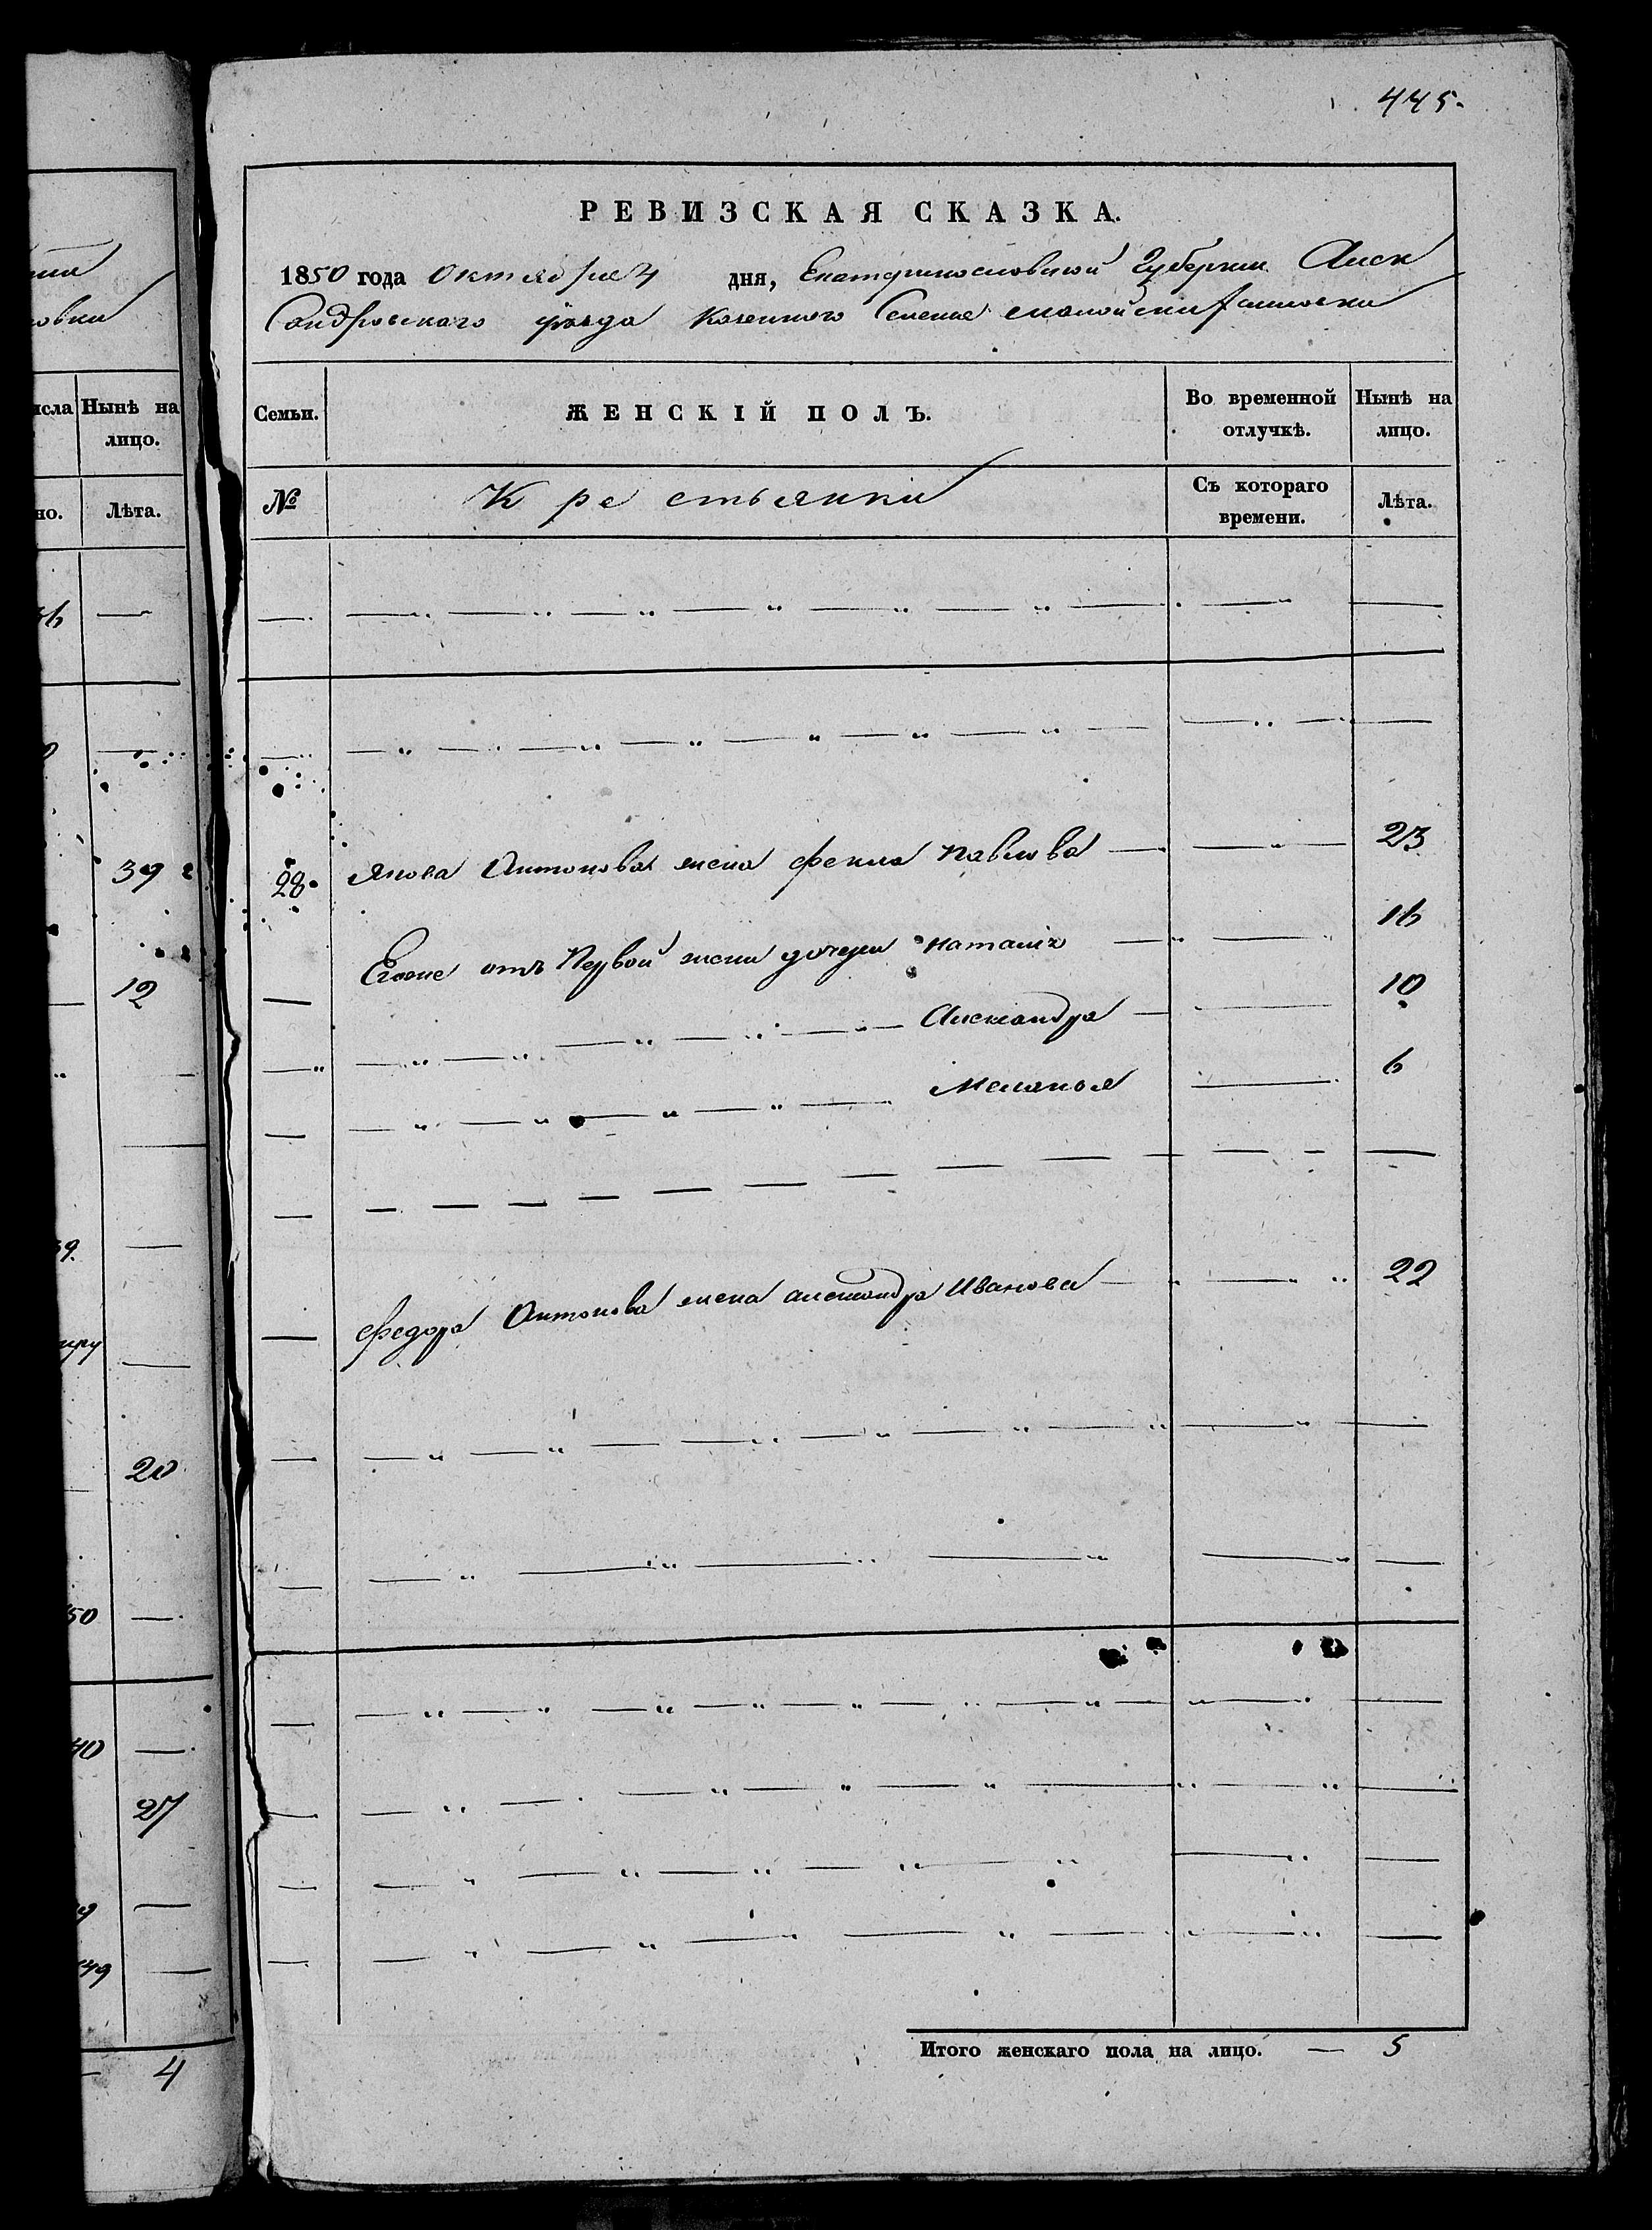 445.
РЕВИЗСКАЯ СКАЗКА.
1850 года Октября 4 дня, Екатеринославской Губернии Алек
Сандровскаго уѣзда Казеннаго Селения
Семьи. ЖЕНСКІЙ ПОЛЪ. Во временной отлучкѣ. Нынѣ на лицо.
№ Крестьянки Съ котораго времени. Лѣта.
28. Якова Антонова жена фекла Павлова 23
Егоже отъ Первой жены дочери наталия 16
Александра 10
Меланья 6
федора Антонова жена александра Иванова 22
Итого женскаго пола на лицо. — 5
исла Нынѣ на лицо.
но. Лѣта.
овки
36
39
12
39.
20
50
40
27
49
4